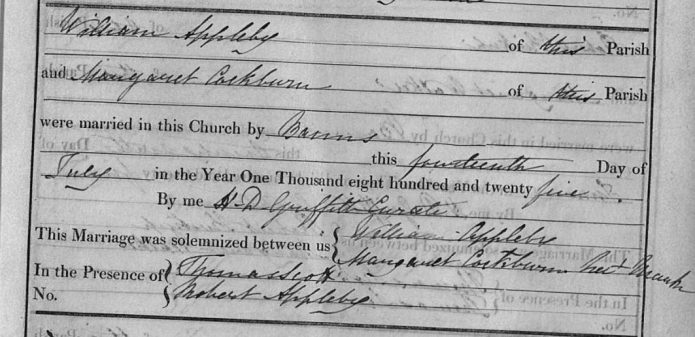 William Appleby of this Parish
and Margaret Cockburn of this Parish
were married in this Church by Banns
this fourteenth Day of
July in the Year One Thousand eight hundred and twenty five.
By me H D Griffith Curate
This Marriage was solemnized between us { William Appleby
Margaret Cockburn her X mark
In the Presence of { Thomas Scott
No. Robert Appleby